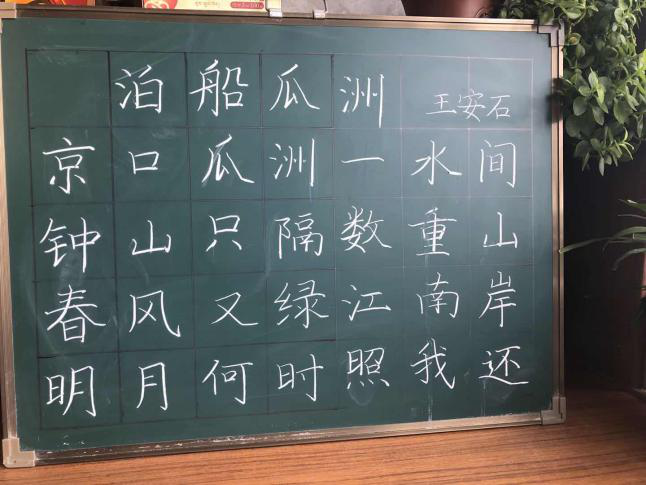 泊船瓜洲 王安石
京口瓜洲一水间
钟山只隔数重山
春风又绿江南岸
明月何时照我还